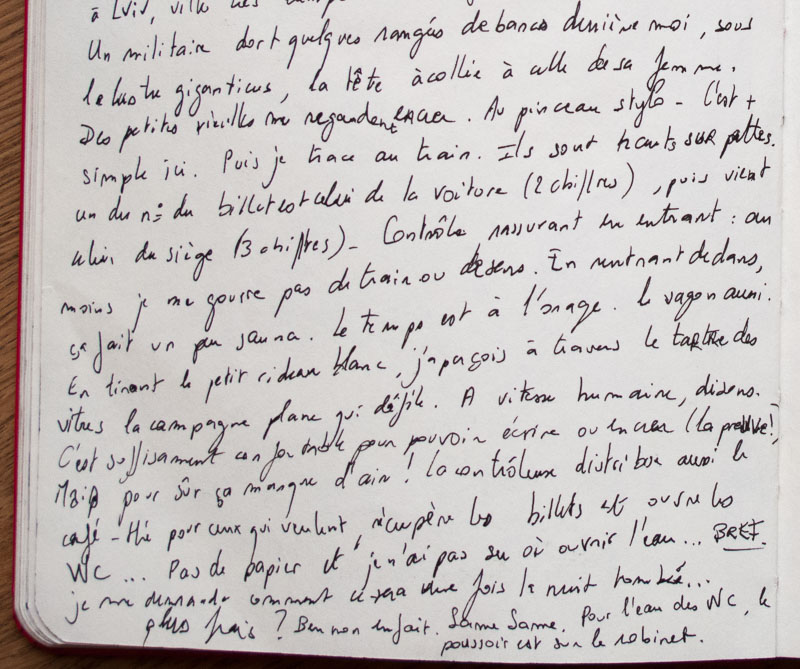 à Lviv, ville des
Un militaire dort quelques rangées de bancs derrière moi, sous
le lustre giganticus, la tête accollée à celle de sa femme.
Des petites vieilles me regardent encrer. Au pinceau stylo - C'est +
simple ici. Puis je trace au train. Ils sont hauts sur pattes.
un du n° du billet est celui de la voiture (2 chiffres), puis vient
celui du siège (3 chiffres) - Contrôle rassurant en entrant : au
moins je me gourre pas de train ou de sens. En rentrant dedans,
ça fait un peu sauna. Le temps est à l'orage. Le vagon aussi.
En tirant le petit rideau blanc, j'aperçois à travers le tartre des
vitres la campagne plane qui défile. A vitesse humaine, disons.
C'est suffisament confortable pour pouvoir écrire ou encrer (la preuve!)
Mais pour sûr ça manque d'air ! La contrôleuse distribue aussi le
café - thé pour ceux qui veulent, récupère les billets et ouvre les
WC ... Pas de papier et je n'ai pas su où ouvrir l'eau ... BREF.
je me demande comment ce sera une fois la nuit tombée ...
plus frais ? Ben non en fait. Same Same. Pour l'eau des WC, le
poussoir est sur le robinet.